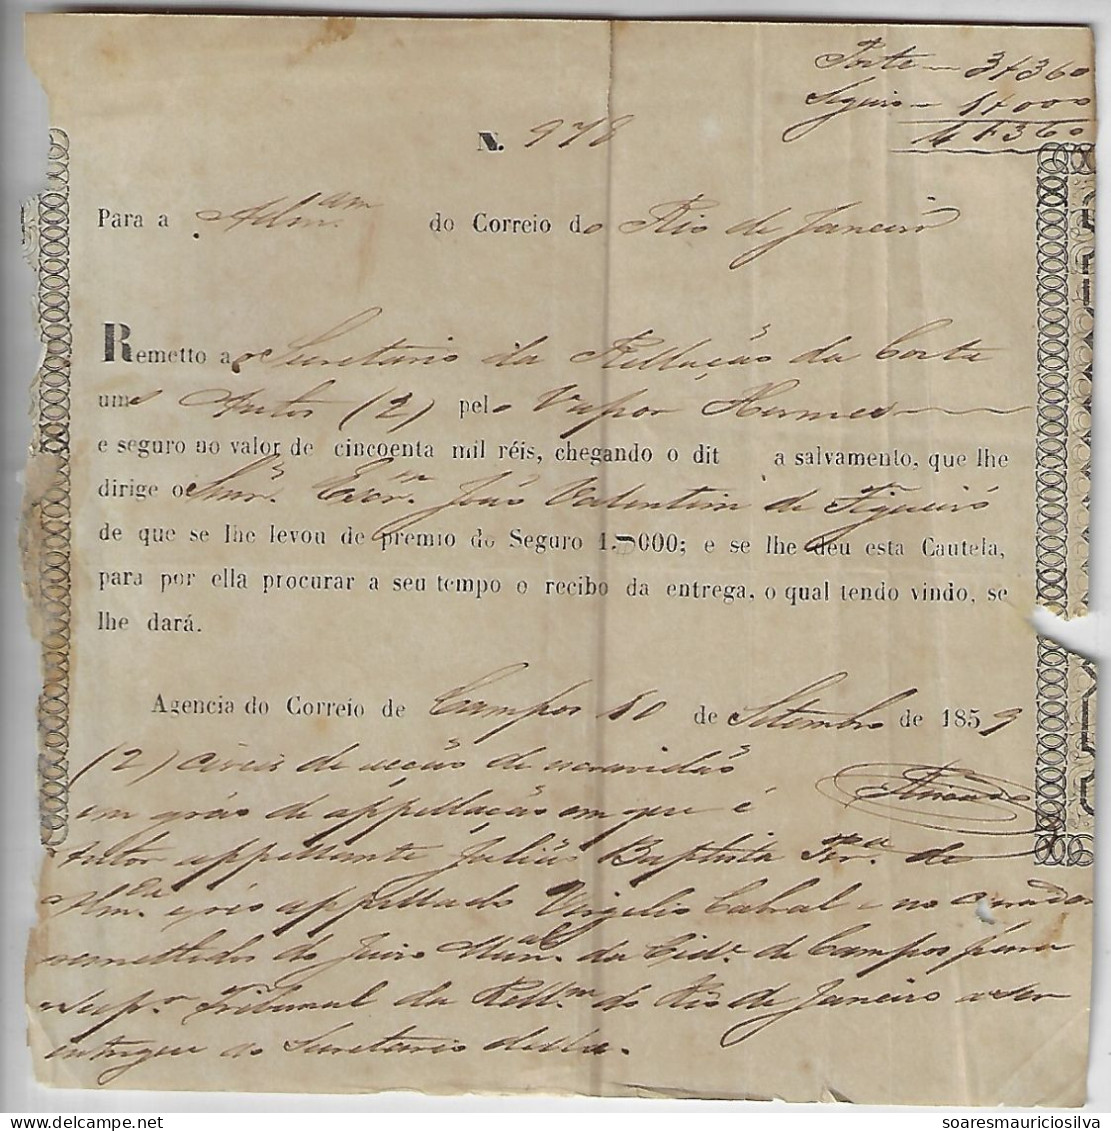 Porte — 3$360
Seguro — 1$000
4$360
N. 978
Para a Adm.am do Correio do Rio de Janeiro
Remetto ao Secretario da Rellação da Corte
ums Autos (2) pelo Vapor Hermes
e seguro no valor de cincoenta mil réis, chegando o dit a salvamento, que lhe
dirige o Snr. Escr.m João Valentim de Figueiró
de que se lhe levou de premio do Seguro 1.$000; e se lhe deu esta Cautela,
para por ella procurar a seu tempo o recibo da entrega, o qual tendo vindo, se
lhe dará.
Agencia do Correio de Campos 10 de Setembro de 1859
(2) civeis de acção de escravidão
em gráo de appellação em que é
Autor appellante Julião Baptista Pra. de
Alm.da e réo appellado Virgilio Cabral e seo Curador
remettidos do Juizo Mun.al da Cid.e de Campos para
o Sup.r Tribunal da Rell.am do Rio de Janeiro a ser
entregue ao Secretario della.
soaresmauriciosilva